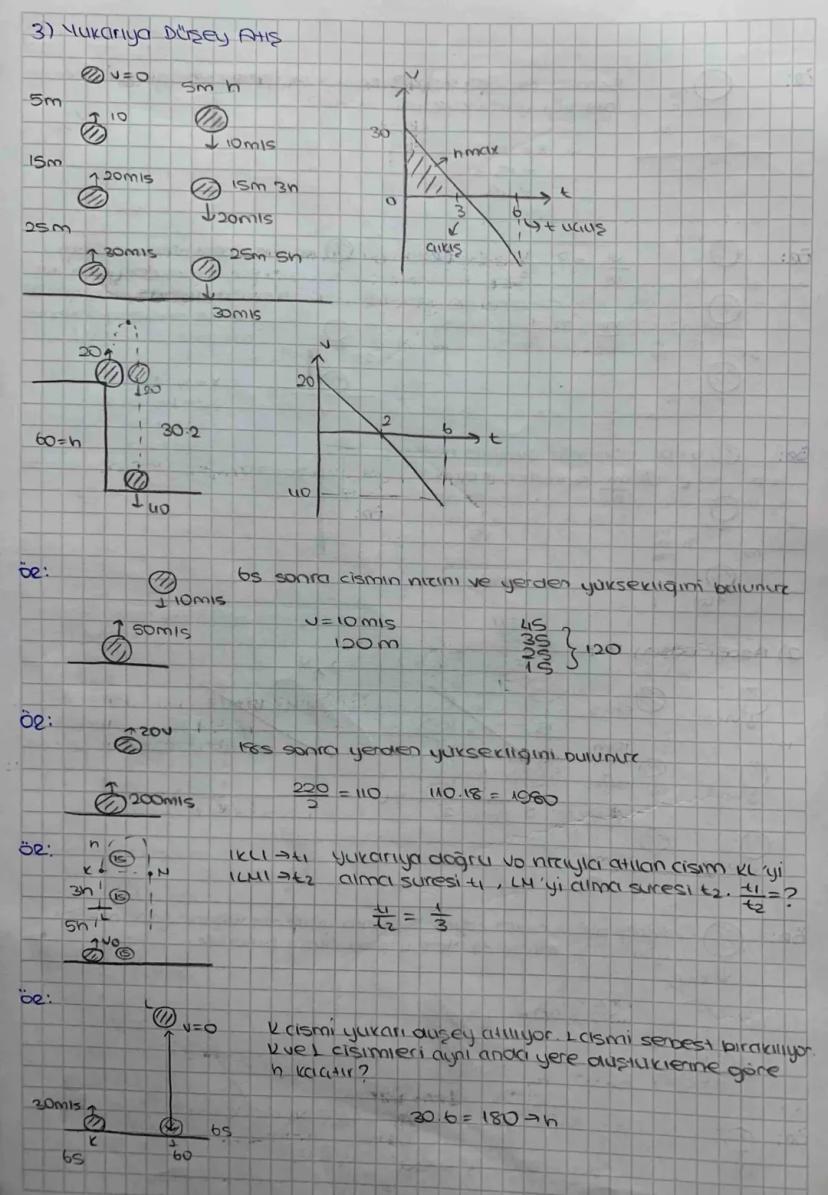 3) Yukarıya Düşey Atış
v=0
5m h
5m
10
10m/s
15m
20m/s
15m 3h
20m/s
25m
30m/s
25m 5h
30m/s
v
30
hmax
0
3
6
t
t uçuş
çıkış
20
20
60=h
30.2
40
v
20
2
6
t
40
ör:
6s sonra cismin hızını ve yerden yüksekliğini bulunuz
10m/s
50m/s
v=10m/s
120m
45
35
25
15
120
ör:
20v
18s sonra yerden yüksekliğini bulunuz
200m/s
220/2 = 110
110.18 = 1980
ör:
h
1s
K
N
3h
1s
L
5h
v0
|KL| → t1 yukarıya doğru v0 hızıyla atılan cisim KL'yi
|LM| → t2 alma süresi t1, LM'yi alma süresi t2. t1/t2 = ?
t1/t2 = 1/3
ör:
L
v=0
K cismi yukarı düşey atılıyor. L cismi serbest bırakılıyor.
K ve L cisimleri aynı anda yere düştüklerine göre
h kaçtır?
30m/s
K
6s
6s
60
30.6 = 180 → h